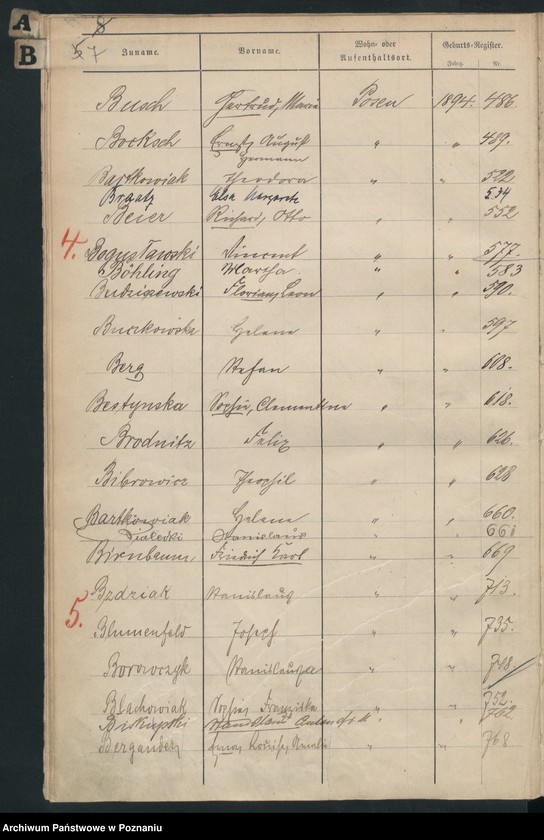 A
B
8
7
Zuname. Vorname. Wohn- oder Aufenthaltsort. Geburts-Register.
Jahrg. Nr.
Busch Gertrud, Marie Posen 1894. 486
Bocksch Ernst, August Hermann " " 489.
Bartkowiak Theodora " " 522
Braatz Elsa Margarete 534
Beier Richard, Otto " " 552
4.
Bogusławski Vincent " " 577.
Böhling Martha " " 583
Budziszewski Florian, Leon " " 590.
Buczkowska Helene " " 597
Berg Stefan " " 608.
Bestynska Sophie, Clementine " " 618.
Brodnitz Felix " " 626.
Bibrowicz Theophil " " 628
Bartkowiak Helene " " 660.
Bialecki Stanislaus " " 661
Birnbaum Friedrich Karl " " 669
Bzdziak Stanislaus " " 713.
5.
Blumenfeld Joseph " " 735.
Borowczyk Stanislaus " " 748
Blachowiak Sophie Franziska " " 752.
Biskupski Stanislaus Anton " 762
Bergander Erna, Louise, Amalie " " 768
Archiwum Państwowe w Poznaniu
szukajwarchiwach.gov.pl